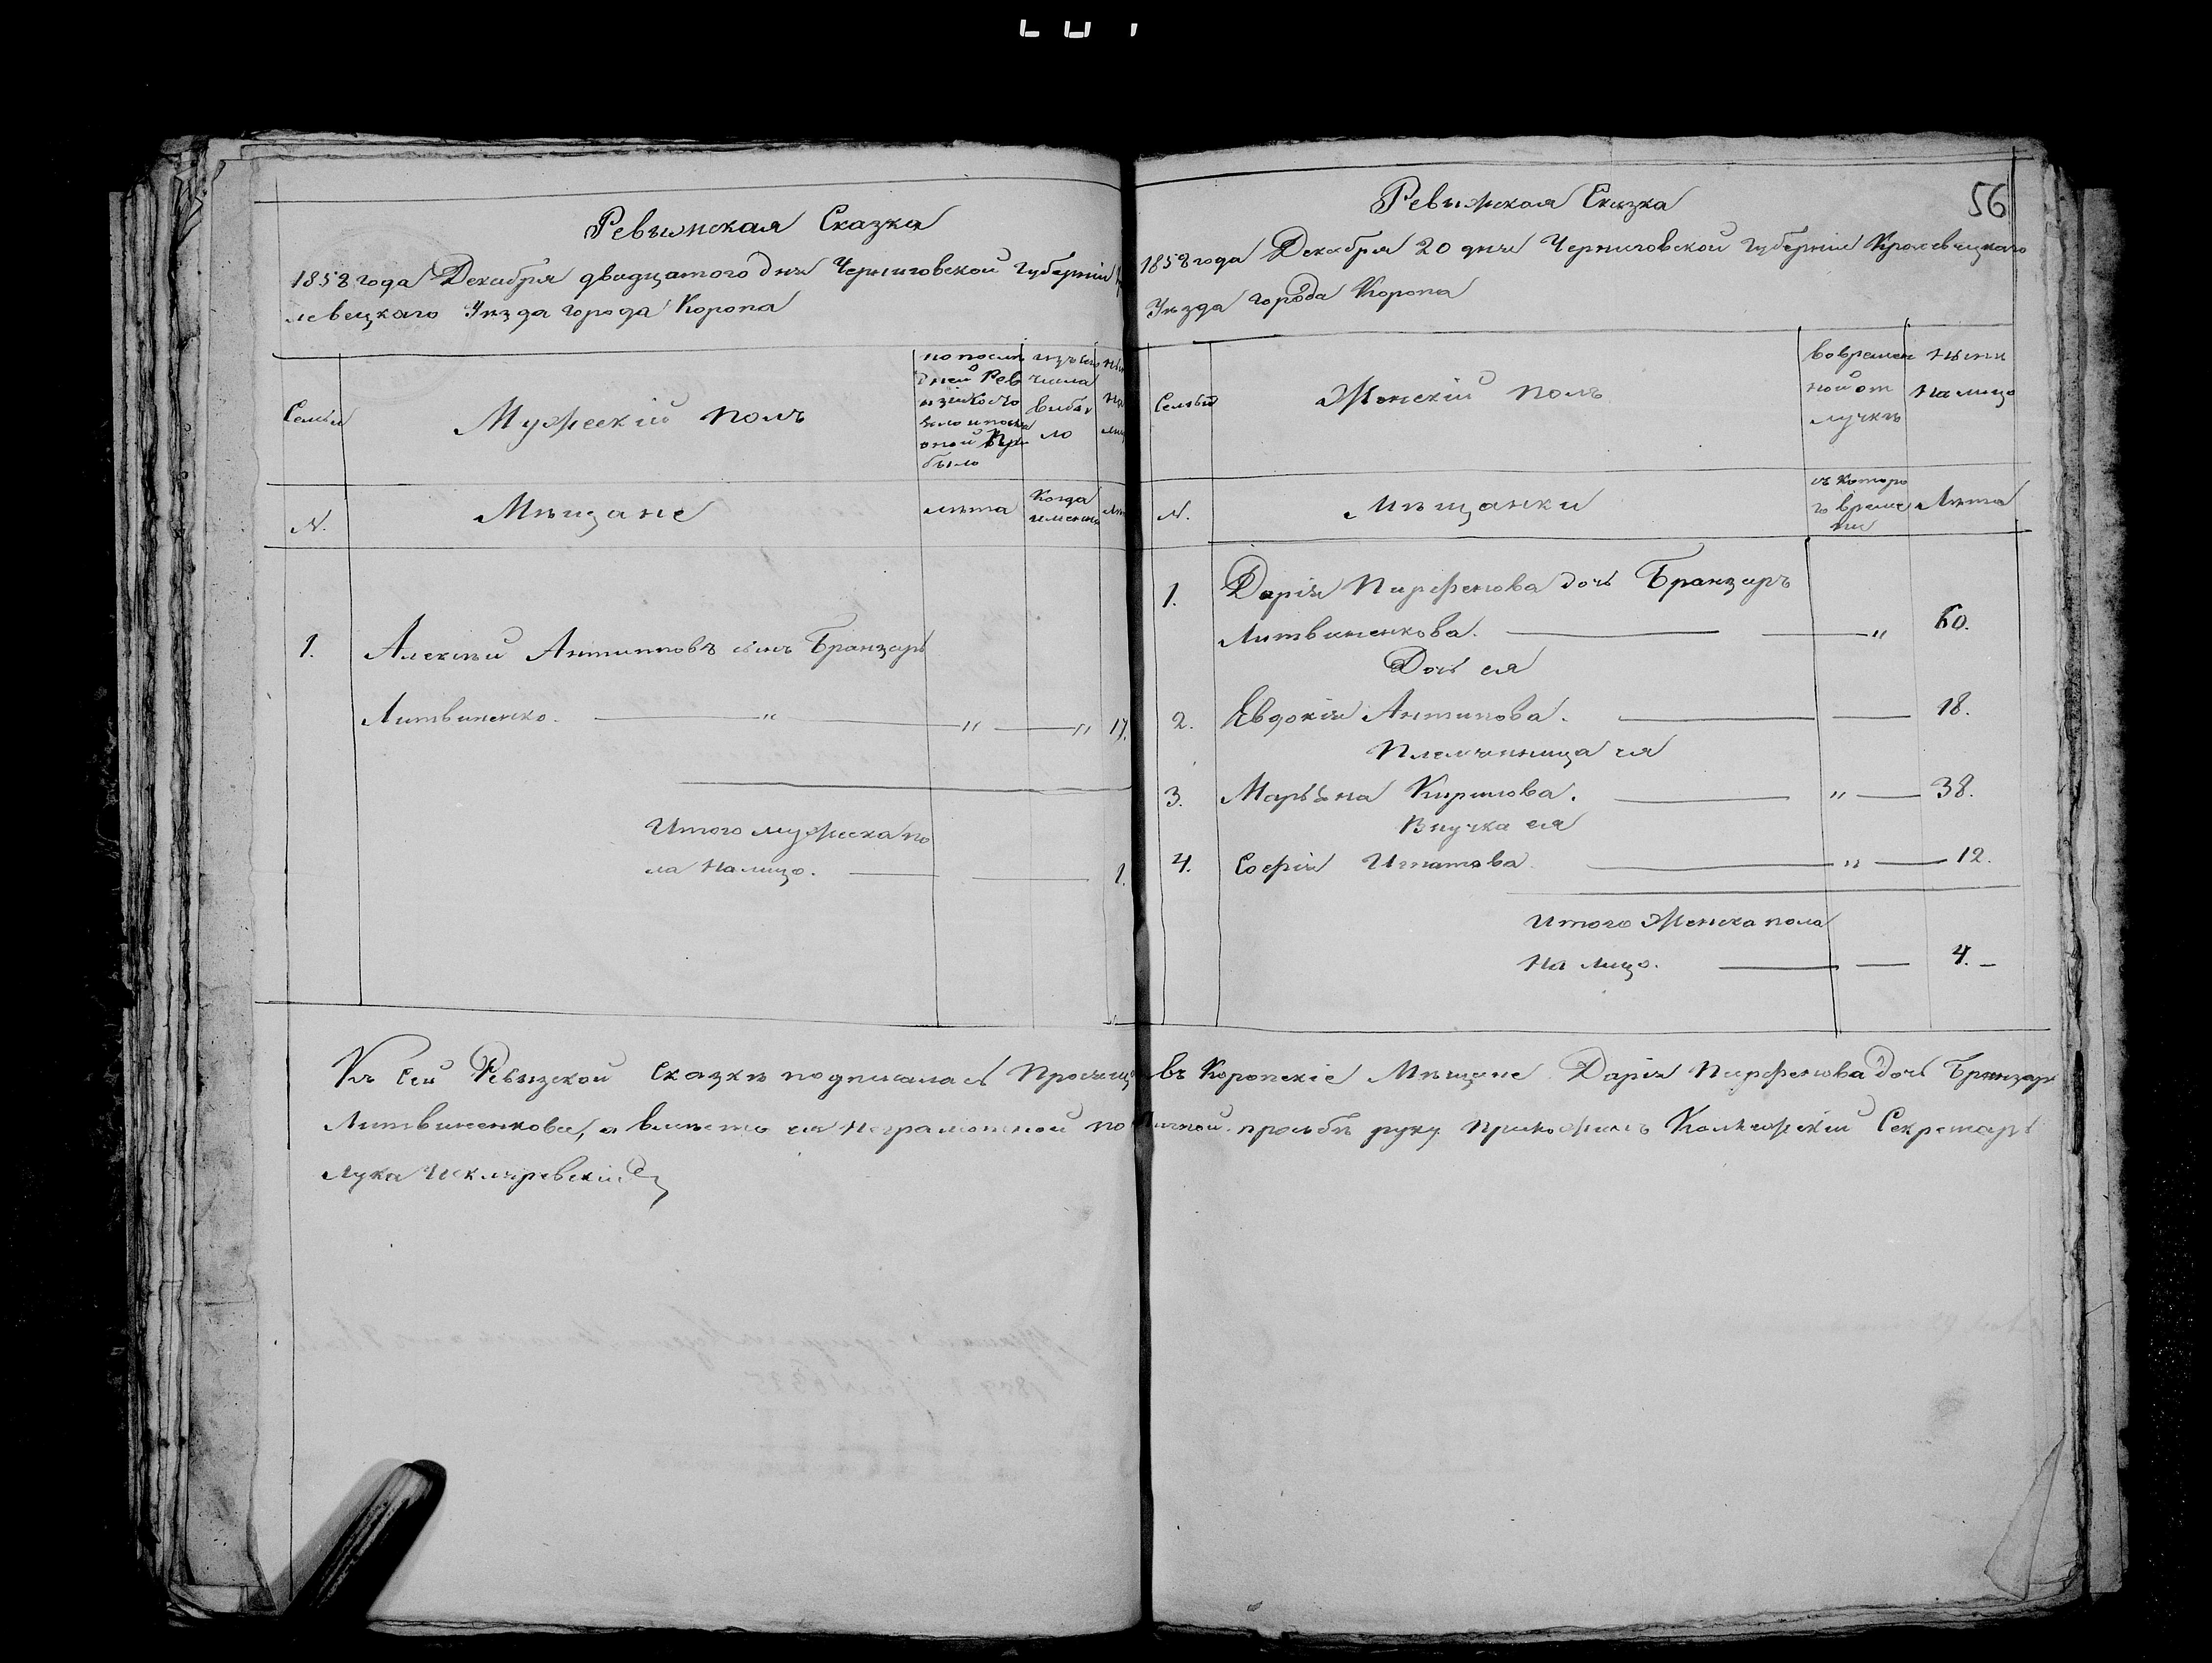 Ревыжская Сказка
1858 года Декабря двадцатого дня Черниговской Губерніи
левецкаго Уезда города Коропа
Семьи
Мужескій полъ
по послѣ
дней Рев
изіи
было
изъ
числа
выбы
ло
N.
Мѣщане
лѣта
Когда
именно
1. Алексѣй Антиповъ сынъ Бранзарь
Литвиненко. — " — " — " 17.
Итого мужеска по
ла налицо. — — 1.
56
Ревыжская Сказка
1858 года Декабря 20 дня Черниговской Губерніи Кролевецкаго
Уезда города Коропа
Семьи
Женскій полъ
вовремен
ной от
лучкѣ
нынѣ
налицо
N.
Мѣщанки
съ которо
го време
ни
Лѣта
1. Дарія Парфенова дочь Бранзаръ
Литвиненкова. — — " 60.
Дочь ея
2. Евдокія Антипова. — — 18.
Племянница ея
3. Марьяна Кирилова. — " — 38.
Внучка ея
4. Софія Игнатова — " — 12.
Итого Женска пола
на лицо. — — 4. –
Къ Сей Ревизской Сказкѣ подписалась въ Коропскіе Мѣщане Дарія Парфенова дочь Бранзарь
Литвиненкова, а вмѣсто ея неграмотной по личной просьбѣ руку приложилъ Секретарь
Лука